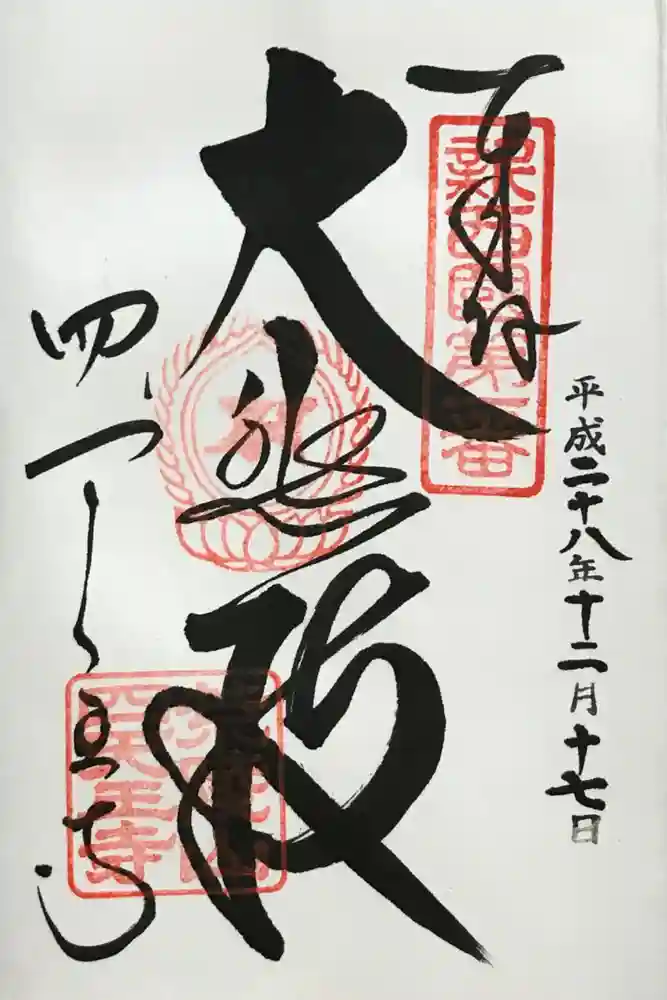 奉拝
新西國第一番
平成二十八年十二月十七日
大悲殿
四天王寺
荒陵山
四天王寺